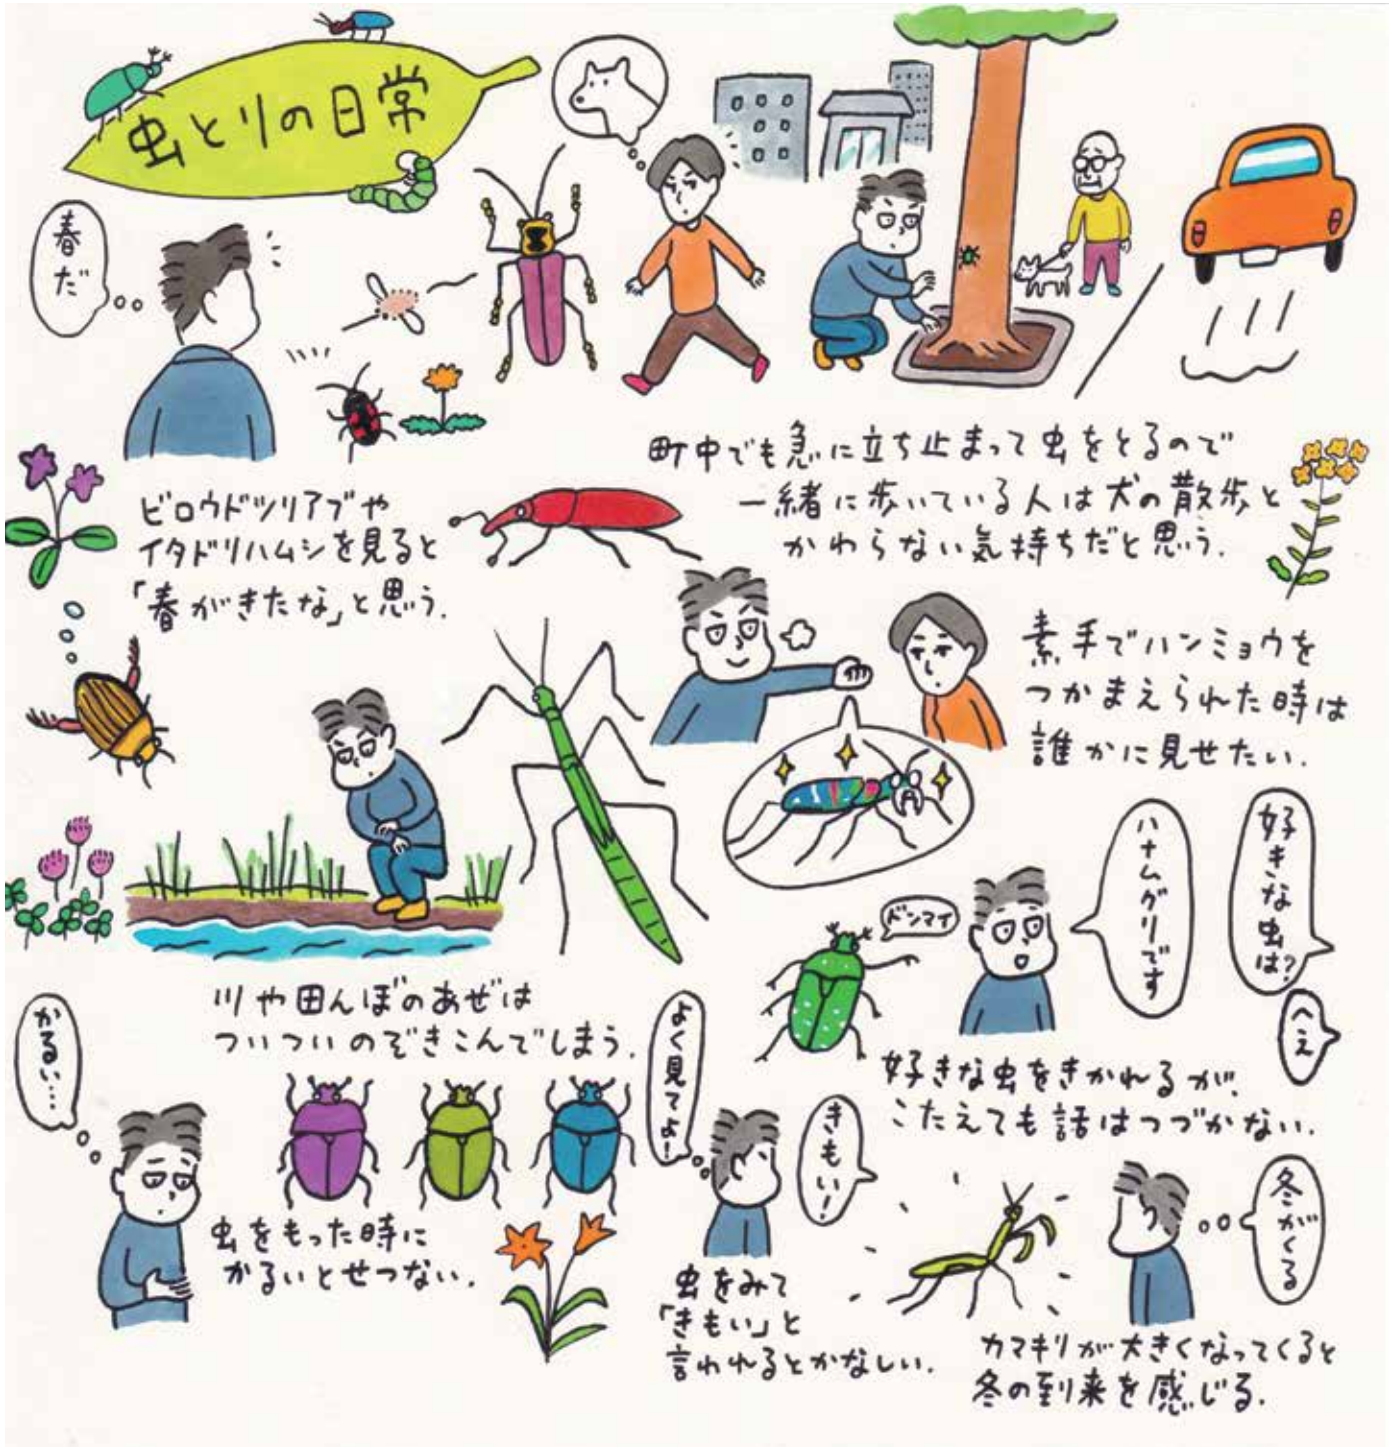 虫とりの日常
春だ
ビロウドツリアブや
イタドリハムシを見ると
「春がきたな」と思う.
町中でも急に立ち止まって虫をとるので
一緒に歩いている人は犬の散歩と
かわらない気持ちだと思う.
素手でハンミョウを
つかまえられた時は
誰かに見せたい.
川や田んぼのあぜは
ついついのぞきこんでしまう.
好きな虫は?
ハナムグリです
へえ
ドンマイ
好きな虫をきかれるが、
こたえても話はつづかない.
かるい…
虫をもった時に
かるいとせつない.
よく見てよ!
きもい!
虫をみて
「きもい」と
言われるとかなしい.
冬がくる
カマキリが大きくなってくると
冬の到来を感じる.